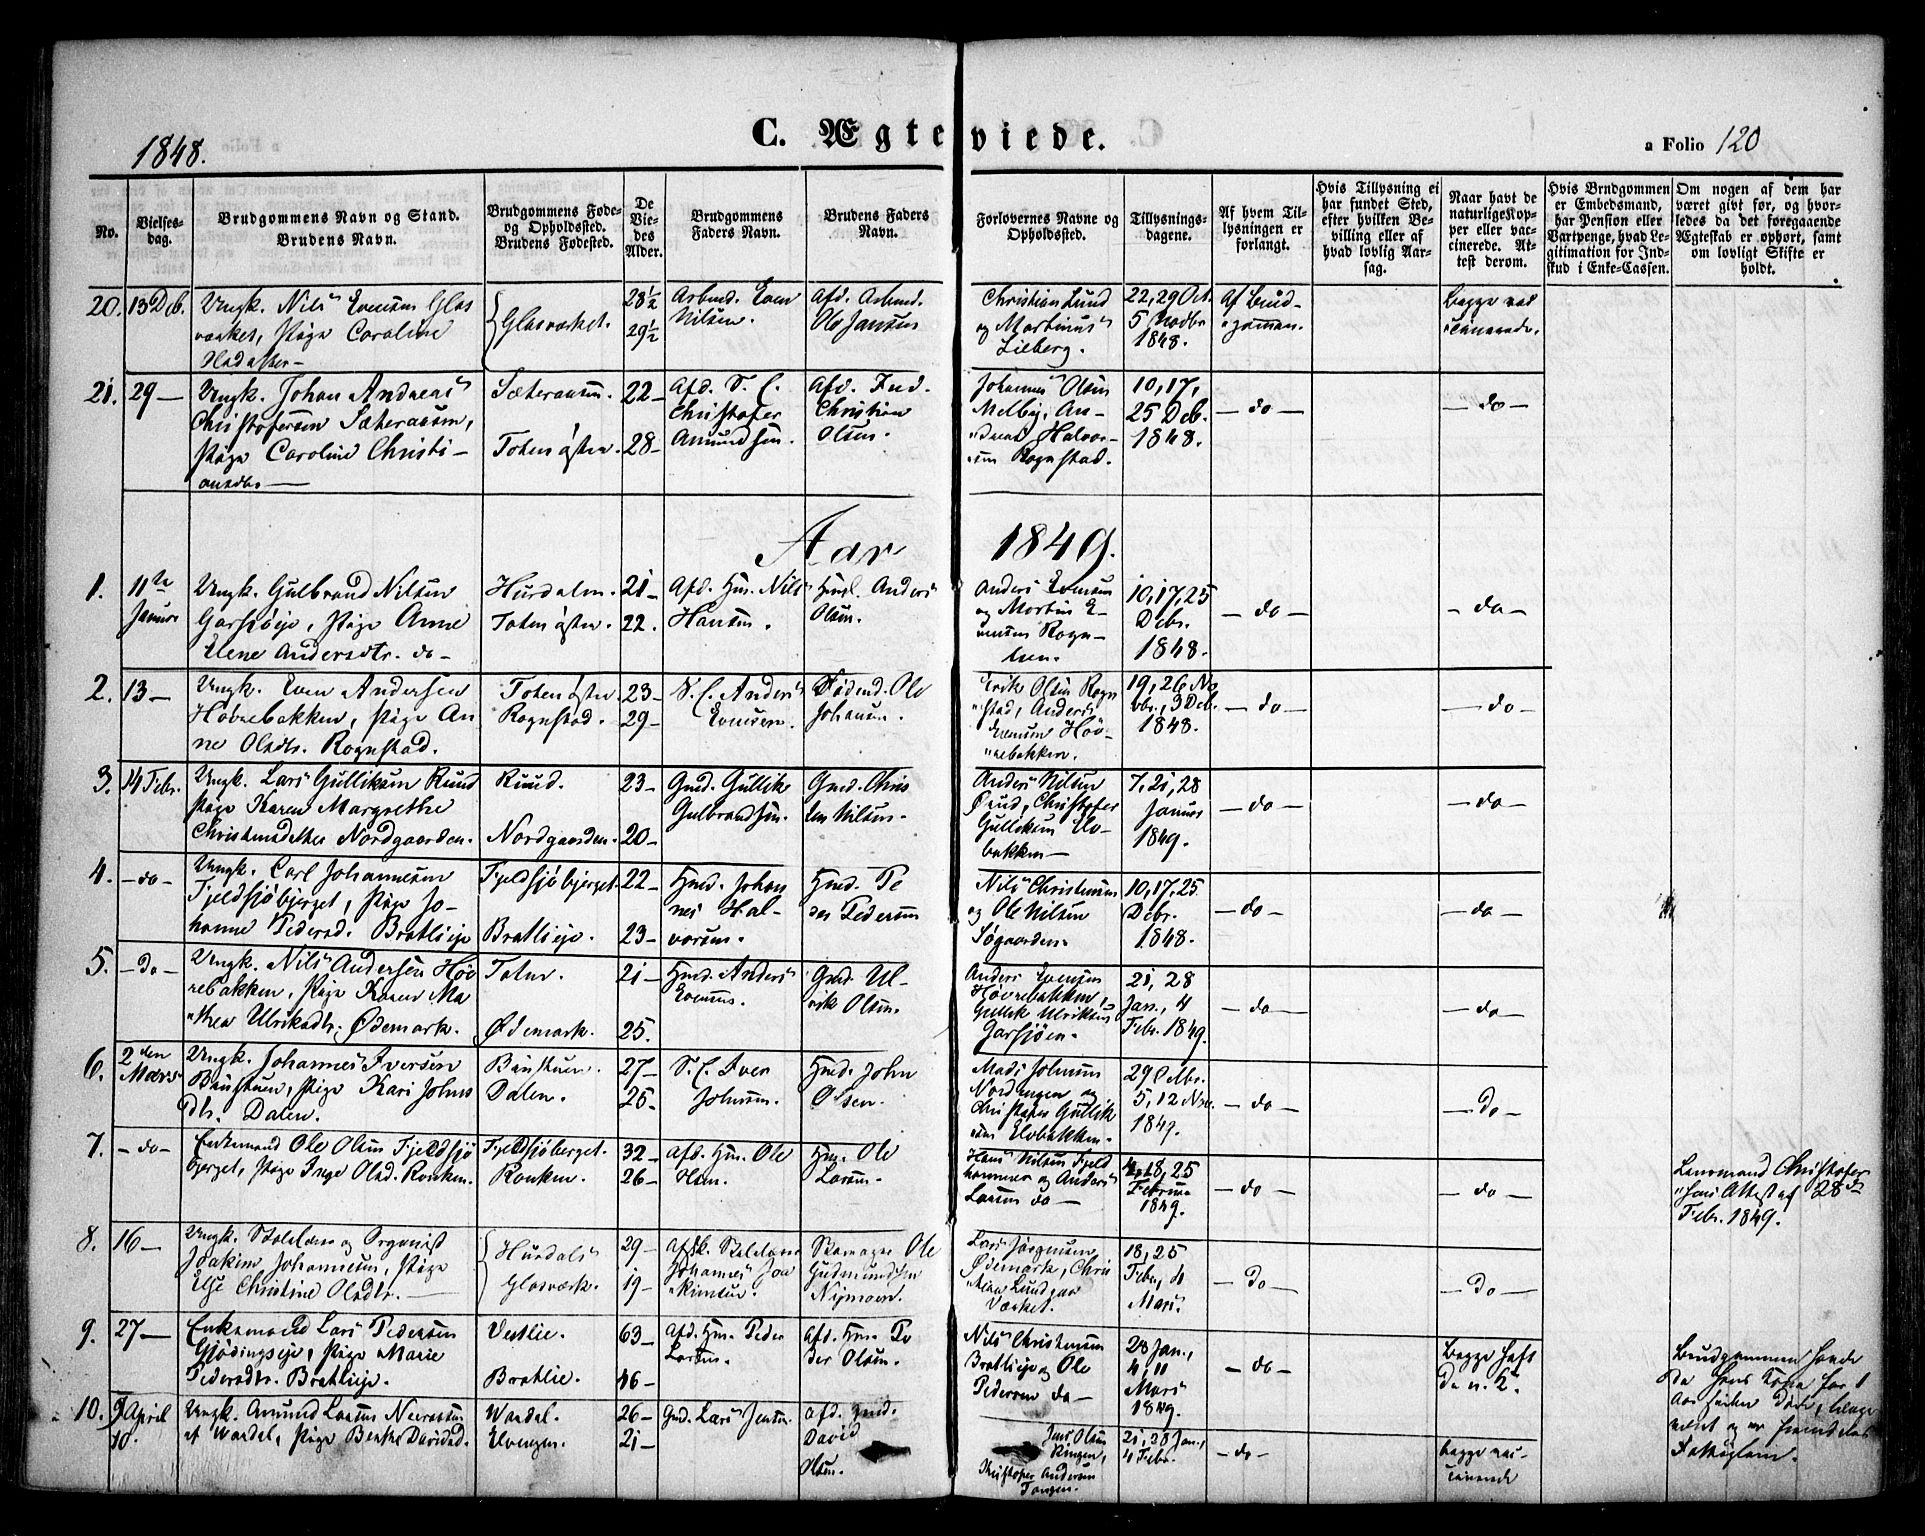 1848.
C. Ægteviede.
a Folio 120
No.
Vielses-
dag.
Brudgommens Navn og Stand.
Brudens Navn.
Brudgommens Føde-
og Opholdssted.
Brudens Fødested.
De
Vie-
des
Alder.
Brudgommens
Faders Navn.
Brudens Faders
Navn.
Forlovernes Navne og
Opholdssted.
Tillysnings-
dagene.
Af hvem Til-
lysningen er
forlangt.
Hvis Tillysning ei
har fundet Sted,
efter hvilken Be-
villing eller af
hvad lovlig Aar-
sag.
Naar havt de
naturlige Kop-
per eller vac-
cinerede. At-
test derom.
Hvis Brudgommen
er Embedsmand,
har Pension eller
Vartpenge, hvad Le-
gitimation for Ind-
skud i Enke-Cassen.
Om nogen af dem har
været gift før, og hvor-
ledes da det foregaaende
Ægteskab er ophørt, samt
om lovligt Skifte er
holdt.
20. 13 Deb. Ungk. Nils Evensen Glas
værket, Pige Caroline
Olsdatter
Glasværket.
28½
29½
Arbmd. Even
Nilsen.
Afd. Arbmd.
Ole Jansen
Christian Lund
og Martinus
Lieberg.
22, 29 Oct.
5 Novbr
1848.
Af Brud-
gommen.
Begge vac
cinerede.
21. 29 — Ungk. Johan Andreas
Christofersen Sæteraasen,
Pige Caroline Christi-
ansdtr.
Sæteraasen.
Toten østre.
22 —
28 —
Afd. S. E.
Christofer
Amundsen.
Afd. Ind.
Christian
Olsen.
Johannes Olsen
Melby, An-
dreas Halvor-
sen Rognstad.
10, 17,
25 Deb.
1848.
— do —
— do —
Aar 1849.
1. 11te
Januar
Ungk. Gulbrand Nilsen
Garsjøeje, Pige Anne
Elene Andersdtr. do —
Hurdalen.
Toten østre.
21 —
22.
Afd. Hm. Nils
Hansen.
Hmd. Anders
Olsen.
Anders Evensen
og Morten E-
vensen Rogn-
lien.
10, 17, 25
Debr.
1848.
— do —
— do —
2. 13 — Ungk. Even Andersen
Høvrebakken, Pige An
ne Olsdtr. Rognstad.
Toten østre.
Rognstad.
23 —
29 —
S. E. Anders
Evensen.
Ole
Johansen.
Erik Olsen Rogn
stad, Anders
Evensen Høv-
rebakken.
19, 26 No
vbr., 3 Deb.
1848.
— do —
— do —
3. 14 Febr. Ungk. Lars Gulliksen Ruud
Pige Karen Margrethe
Christensdatter Nordgaarden.
Ruud.
Nordgaarden.
23 —
20 —
Gmd. Gullik
Gulbrandsen.
Gmd. Chris
ten Nilsen.
Anders Nilsen
Ruud, Christofer
Gulliksen Elv-
bakken —
7, 21, 28
Januar
1849.
— do —
— do —
4. — do — Ungk. Carl Johannesen
Fjeldsjøbjerget, Pige Jo-
hanne Pedersd. Bratlieje
Fjeldsjøbjerget.
Bratlieje.
22 —
23 —
Hmd. Johan
nes Hal-
vorsen.
Hmd. Pe
der Pedersen
Nils Christensen
og Ole Nilsen
Søgaarden.
10, 17, 25
Debr.
1848.
— do —
— do —
5. — Do — Ungk. Nils Andersen Høv
rebakken, Pige Karen Ma
thea Ulriksdtr. Ødemark.
Toten.
Ødemark.
21 —
25.
Hmd. Anders
Evensen.
Gmd. Ul-
rik Olsen.
Anders Evensen
Høvrebakken,
Gullik Ulriksen
Garsjøen.
21, 28
Jan., 4
Febr. 1849.
— do —
— do —
6. 2den
Marts
Ungk. Johannes Iversen
Baustuen, Pige Kari Johns
dtr. Dalen.
Baustuen.
Dalen.
27 —
25 —
S. E. Iver
Johnsen.
Hmd. John
Olsen.
Mads Johnsen
Nordengen og
Christofer Gullik
sen Elvbakken.
29 Octbr.
5, 12 Nov.
1849.
— do —
— Do —
7. — do — Enkemand Ole Olsen Fjeldsjø
bjerget, Pige Inge Olsd. Ronken.
Fjeldsjøberget.
Ronken.
32 —
26 —
Afd. Hm. Ole
Hm. Ole
Larsen.
Hans Nilsen Fjeld
hammer og Anders
Larsen do —
18, 25
Februar
1849.
— do —
— do —
Lensmand Christofer
sens Attest af 28de
Febr. 1849.
8. 16 — Ungk. Skolelærer og Organist
Joakim Johannesen, Pige
Else Christine Olsdtr.
Hurdals
Glasværk.
29 —
19 —
Afsk. Skolelærer
Johannes Joa
kimsen.
Skomager Ole
Gudmundsen
Nijmoen.
Lars Jørgensen
Ødemark, Chris
tian Lund paa
Værket.
18, 25
Febr., 4
Mars.
— Do —
— Do —
9. 27 — Enkemand Lars Pedersen
Gjødingseje, Pige Marie
Pedersdtr. Bratlieje.
Vestlie.
Bratlie.
63 —
46 —
Afd. Hm. Peder
Larsen.
Afd. Hm. Pe
der Olsen.
Nils Christensen
Bratlieje og Ole
Pedersen do —
28 Jan.,
4, 11
Mars
1849.
— do —
Begge haft
De n. K.
Brudgommen havde
da hans Kone for 1
Aar siden Døde,
10. 9 April
10.
Ungk. Amund Larsen Neeraasen
af Wardal, Pige Berthe Davidsd.
Wardal.
Elvengen.
26 —
21 —
Gmd. Lars Jensen
Afd. Gmd.
David
Olsen.
Jens Olsen
Ringen,
Christofer Andersen
Tangen.
21, 28 Jan.,
4 Febr.
— do —
begge vac-
cinerede